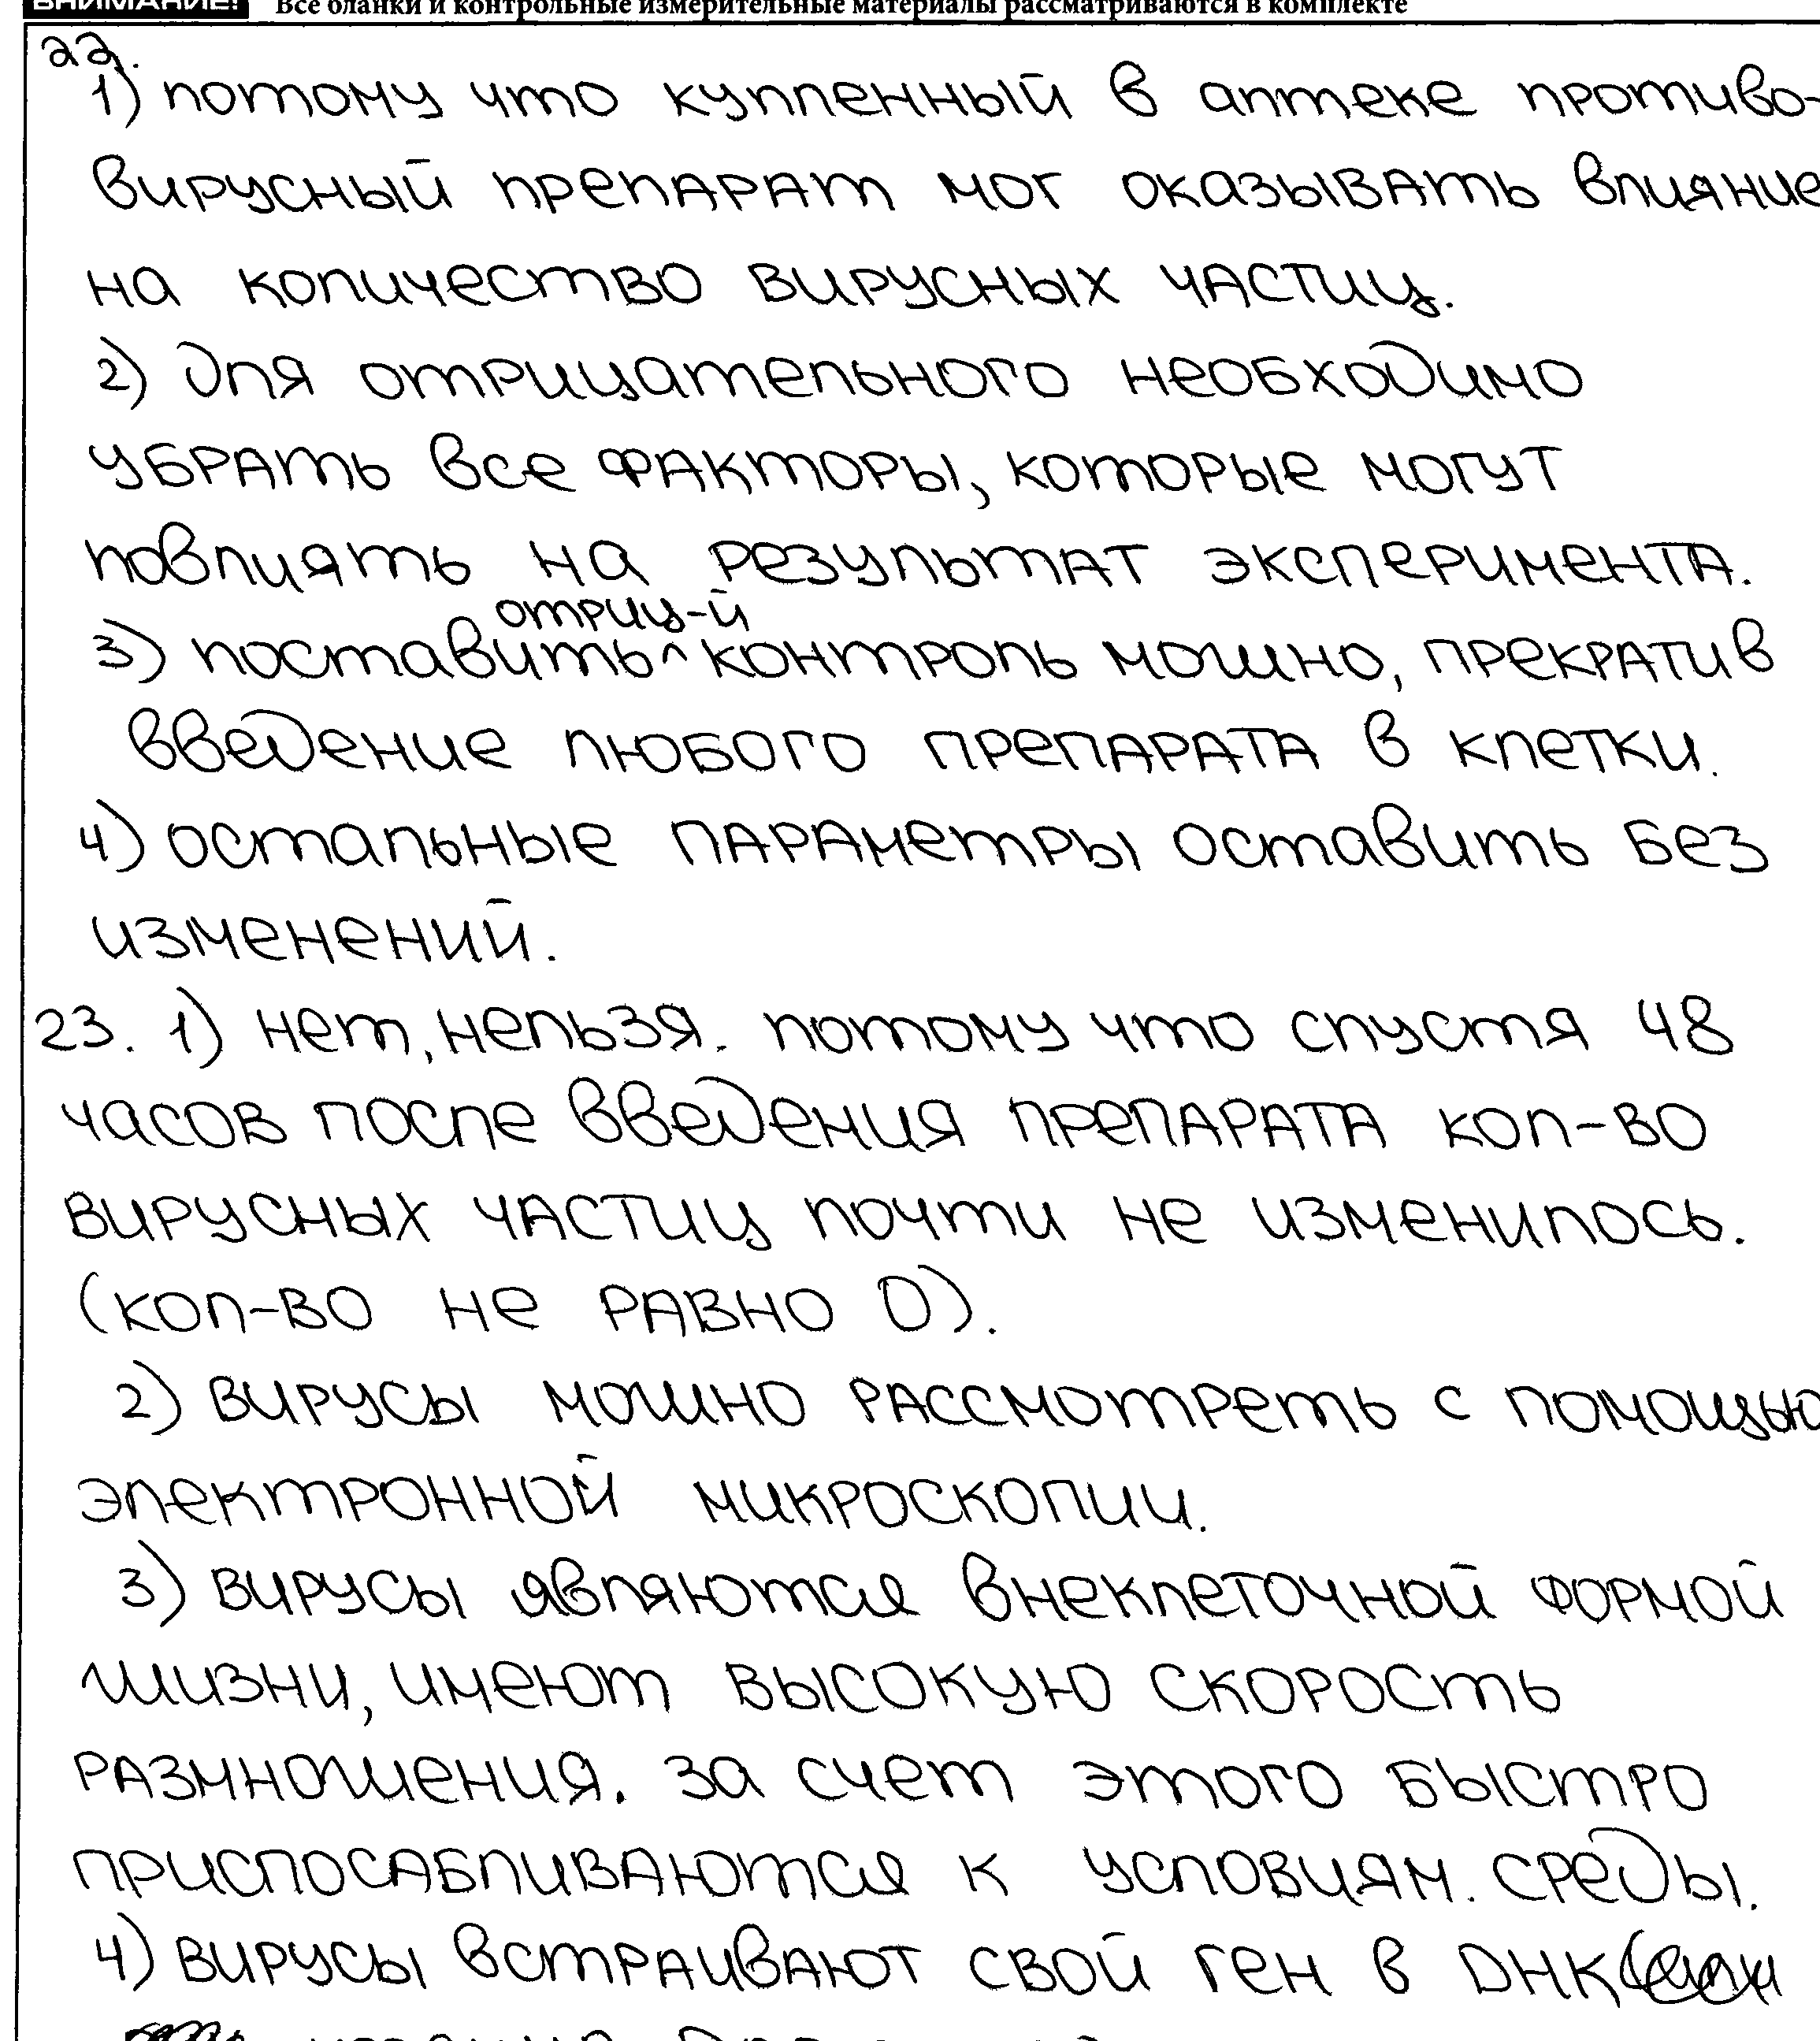 ВНИМАНИЕ! Все бланки и контрольные измерительные материалы рассматриваются в комплекте
22.
1) потому что купленный в аптеке противо-
вирусный препарат мог оказывать влияние
на количество вирусных частиц.
2) для отрицательного необходимо
убрать все факторы, которые могут
повлиять на результат эксперимента.
отриц-й
3) поставить^ контроль можно, прекратив
введение любого препарата в клетки.
4) остальные параметры оставить без
изменений.
23. 1) нет, нельзя. потому что спустя 48
часов после введения препарата кол-во
вирусных частиц почти не изменилось.
(кол-во не равно 0).
2) вирусы можно рассмотреть с помощью
электронной микроскопии.
3) вирусы являются внеклеточной формой
жизни, имеют высокую скорость
размножения. за счет этого быстро
приспосабливаются к условиям. среды.
4) вирусы встраивают свой ген в ДНК